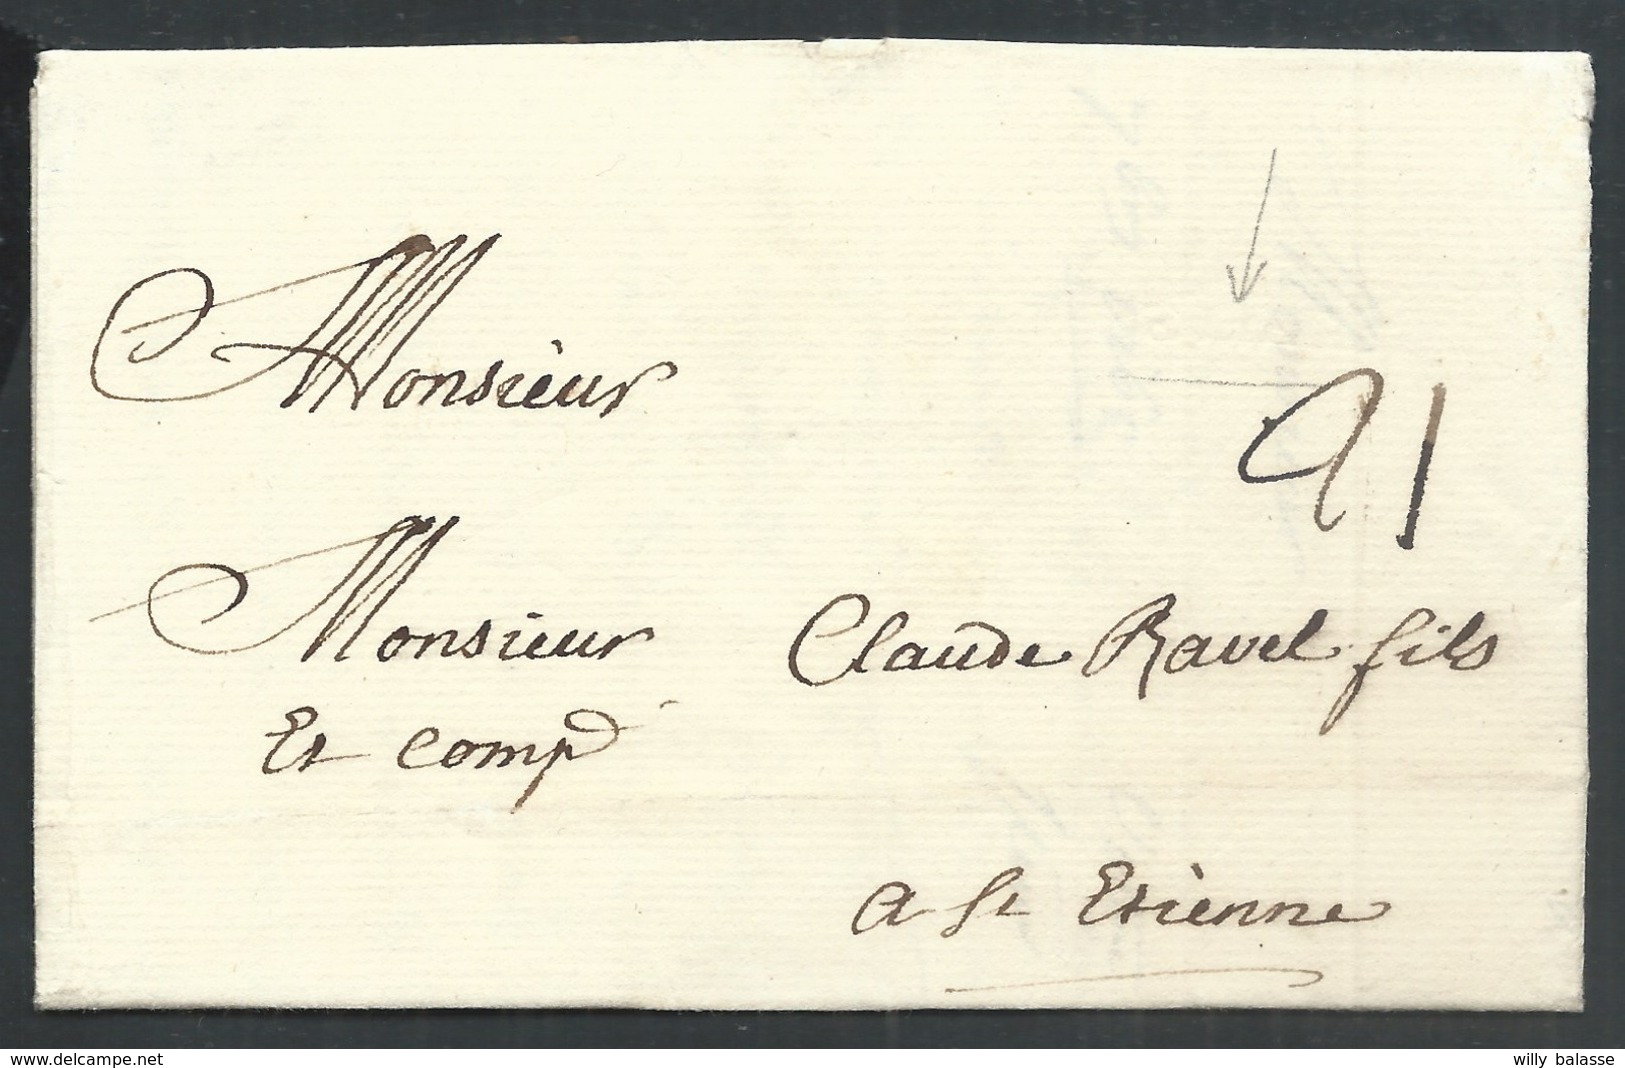 Monsieur
91
Monsieur Claude Ravel fils
Et comp
a St Etienne
www.delcampe.net
willy balasse